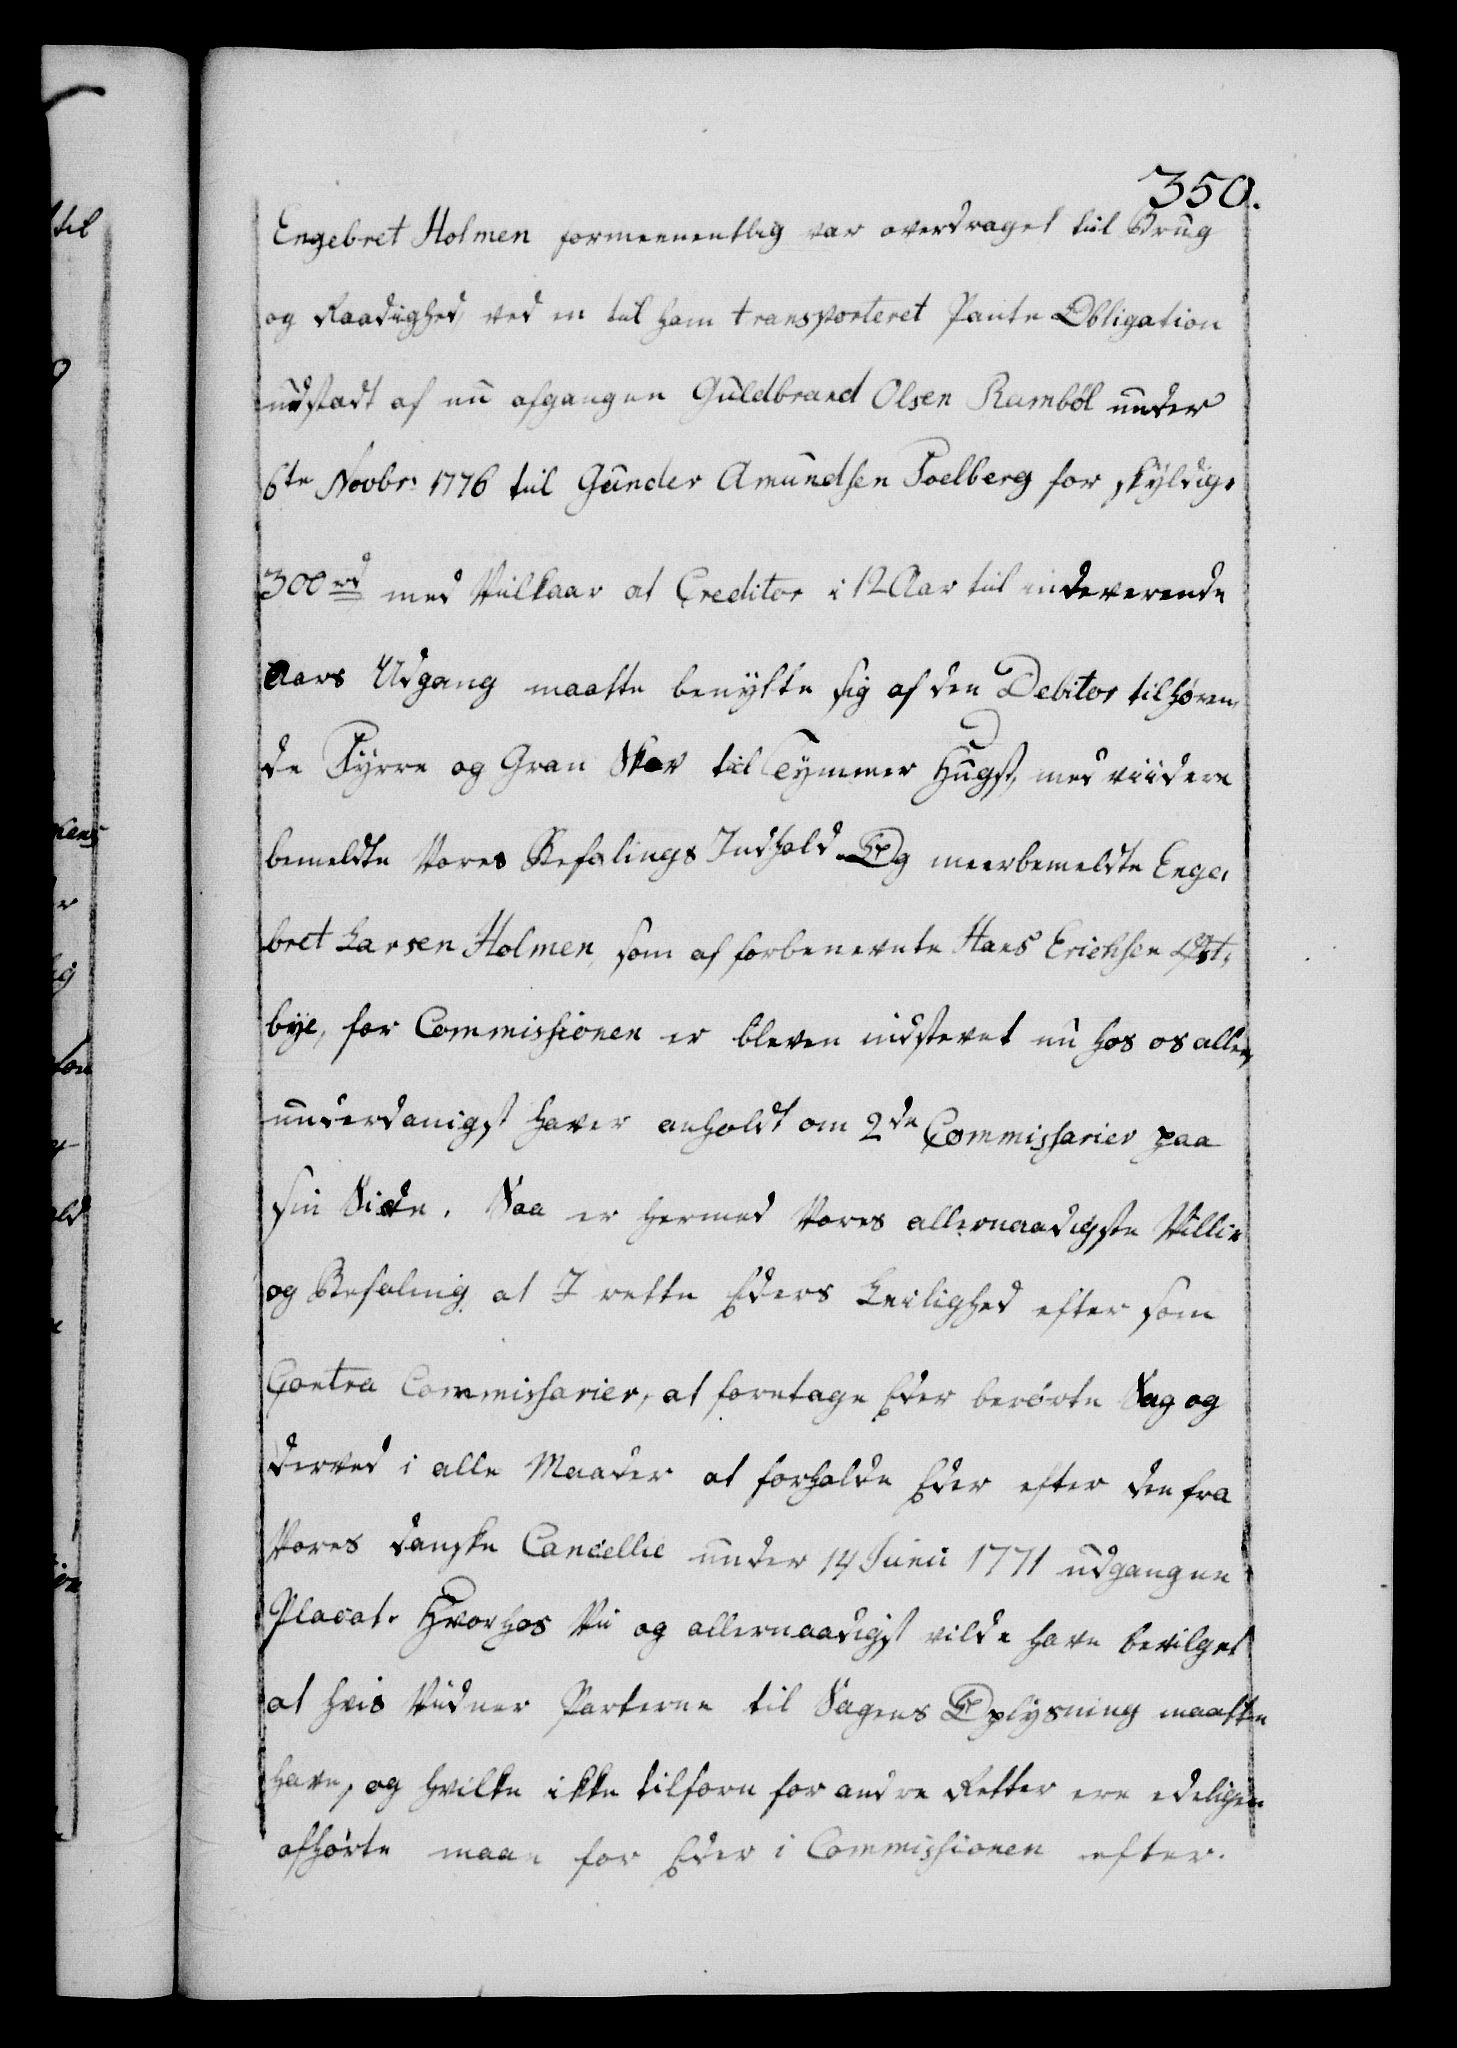 350.
Engebret Holmen formeenentlig var overdraget til Brug
og Raadighed, ved en til ham transporteret Pante Obligation
udstædt af nu afgangen Guldbrand Olsen Ramböl under
6te Novbr: 1776 til Gunder Amundsen Poelberg for skyldige
300 rd med Vilkaar at Creditor i 12 Aar til indeverende
Aars Udgang maatte benytte sig af den Debitor tilhøren,
de Fyrre og Gran Skov til Tymmer Hugst, med viidere
bemeldte Vores Befalings Indhold. Og meerbemeldte Enge,
bret Larsen Holmen, som af forbenevnte Hans Erichsen Øst,
bye, for Commissionen er bleven indstevnet nu hos os aller,
underdanigst haver anholdt om 2de Commissarier paa
sin Side. Saa er hermed Vores allernaadigste Villie
og Befaling at I rette Eders Leilighed efter som
Contra Commissarier, at foretage Eder berørte Sag og
derved i alle Maader at forholde Eder efter den fra
Vores danske Cancellie under 14 Junii 1771 udgangne
Placat. Hvorhos Vii og allernaadigst vilde have bevilget
at hvis Vidner Parterne til Sagens Oplysning maatte
have, og hvilke ikke tilforn for andre Retter ere edeligen
afhørte maae for Eder i Commissionen efter.